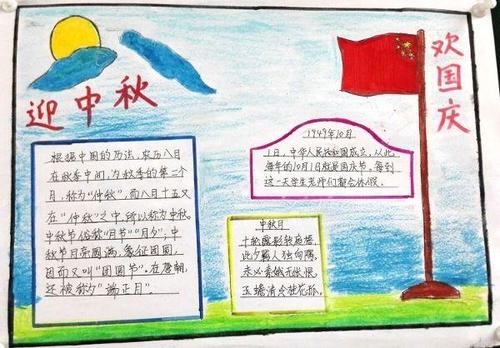 迎中秋
欢国庆
根据中国的历法,农历八月
在秋季中间,为秋季的第二个
月,称为“仲秋”,而八月十五又
在“仲秋”之中,所以称为中秋.
中秋节俗称“月节”“月夕”,中
秋节月亮圆满,象征团圆,
因而又叫“团圆节”.在唐朝,
还被称夕“端正月”.
1949年10月
1日,中华人民共和国成立,从此
每年的10月1日就是国庆节,每到
这一天学生老师们都会休假.
中秋月
十轮霜影转庭梧,
此夕羁人独向隅.
未必素娥无怅恨,
玉蟾清冷桂花孤.